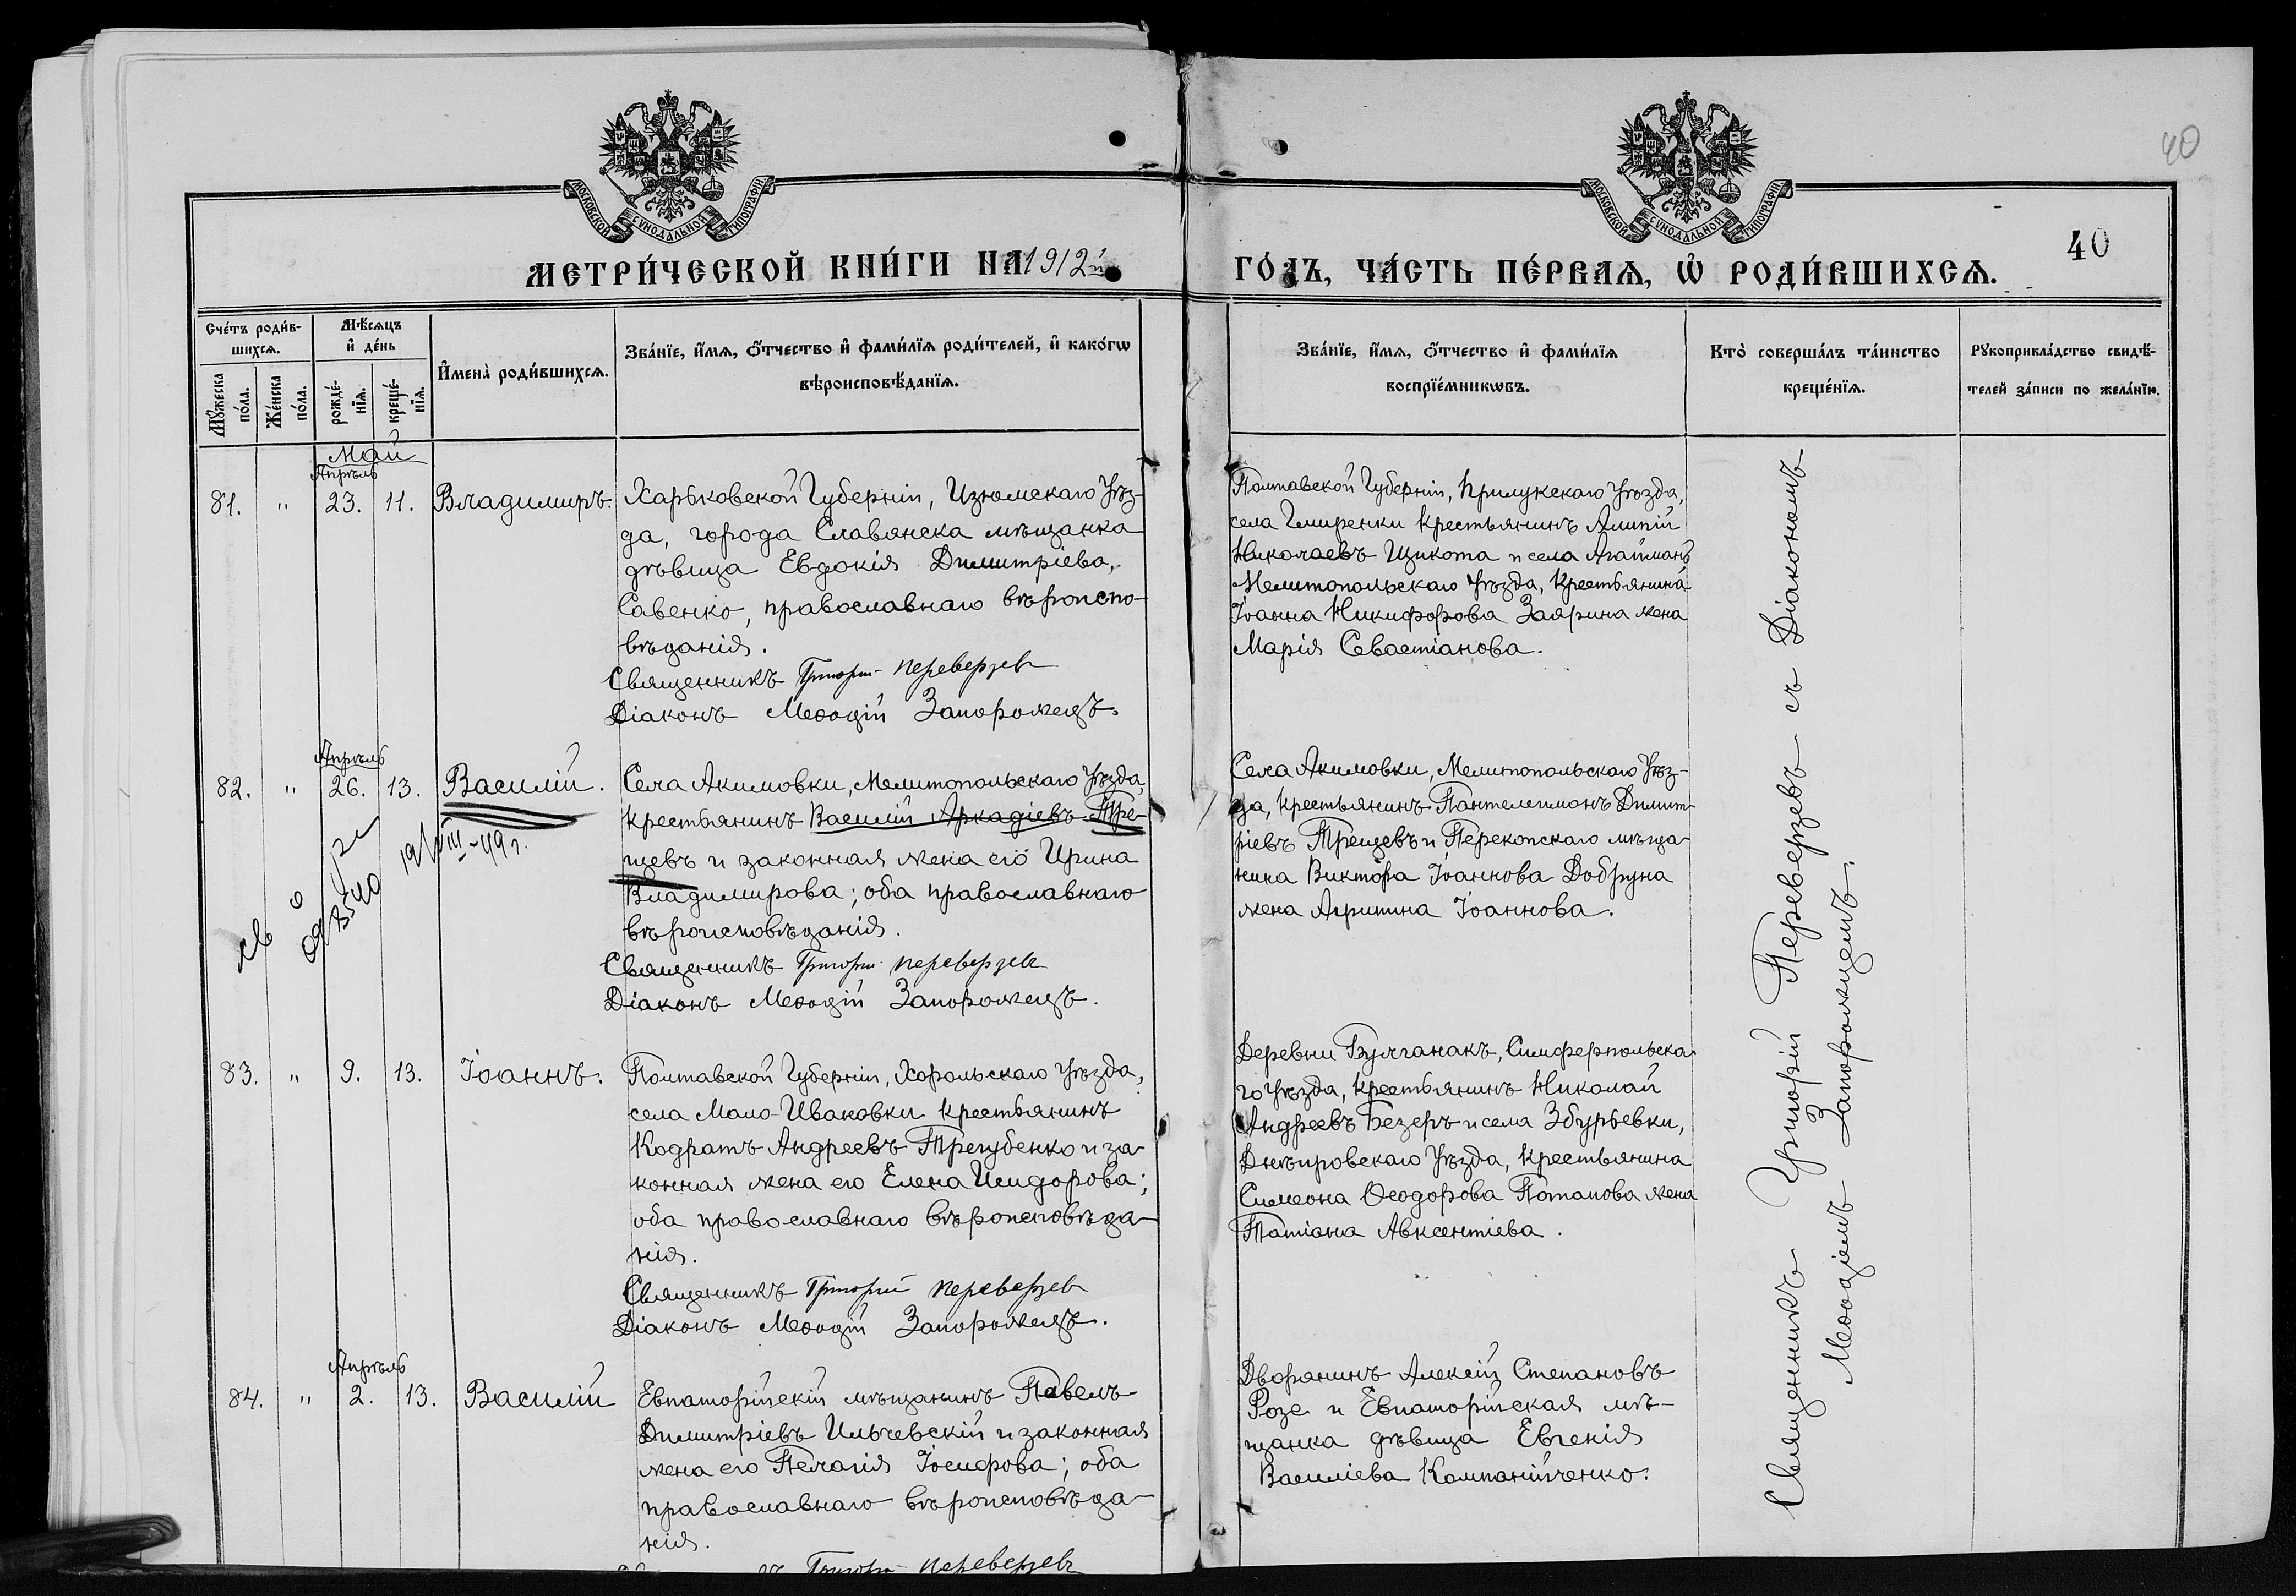 40
МОСКОВСКОЙ СѴНОДАЛЬНОЙ ТИПОГРАФІИ
МОСКОВСКОЙ СѴНОДАЛЬНОЙ ТИПОГРАФІИ
40
МЕТРИ́ЧЕСКОЙ КНИ́ГИ НА 1912й
ГО́ДЪ, ЧА́СТЬ ПЕ́РВАѦ, Ѡ РОДИ́ВШИХСѦ.
Сче́тъ роди́в-
шихсѧ.
Мꙋ́жеска
по́ла.
Же́нска
по́ла.
Мѣ́сѧцъ
и҆ де́нь
рожде́-
нїѧ.
креще́-
нїѧ.
И҆мена̀ роди́вшихсѧ.
Зва́нїе, и҆́мѧ, ѻ҆́тчество и҆ фами́лїѧ роди́телей, и҆ како́гѡ
вѣроисповѣ́данїѧ.
Зва́нїе, и҆́мѧ, ѻ҆́тчество и҆ фами́лїѧ
воспрїе́мникѡвъ.
Кто̀ соверша́лъ та́инство
креще́нїѧ.
Рꙋкоприкла́дство свидѣ́-
телей за́писи по жела́нїю.
Май
Апрѣль
81. " 23. 11. Владимиръ.
Харьковской Губерніи, Изюмскаго Уѣз-
да, города Славянска мѣщанка
дѣвица Евдокія Димитріева,
Савенко, православнаго вѣроиспо-
вѣданія.
Священникъ Григорій Переверзев
Діаконъ Меѳодій Запорожецъ.
Полтавской Губерніи, Прилукскаго Уѣзда,
села Гмиренки крестьянинъ Алипій
Николаевъ Щикота и села Агайманъ
Мелитопольскаго Уѣзда, крестьянина
Іоанна Никифорова Заярина жена
Марія Севастіанова.
Апрѣль
82. " 26. 13. Василій.
19/VIII-49 г.
Села Акимовки, Мелитопольскаго Уѣзда,
крестьянинъ Василій Аркадіевъ Тре-
щевъ и законная жена его Ирина
Владимирова; оба православнаго
вѣроисповѣданія.
Священникъ Григорій Переверзев
Діаконъ Меѳодій Запорожецъ.
Села Акимовки, Мелитопольскаго Уѣз-
да, крестьянинъ Пантелеимонъ Димит-
ріевъ Трещевъ и Перекопскаго мѣща-
нина Виктора Іоаннова Добруна
жена Агрипина Іоаннова.
83. " 9. 13. Іоаннъ.
Полтавской Губерніи, Хорольскаго Уѣзда,
села Мало-Ивановки крестьянинъ
Кодратъ Андреевъ Трегубенко и за-
конная жена его Елена Исидорова;
оба православнаго вѣроисповѣда-
нія.
Священникъ Григорій Переверзев
Діаконъ Меѳодій Запорожецъ.
Деревни Булганакъ, Симферопольска-
го Уѣзда, крестьянинъ Николай
Андреевъ Безеръ и села Збурьевки,
Днѣпровскаго Уѣзда, крестьянина
Симеона Ѳеодорова Потапова жена
Татіана Авксентіева.
Апрѣль
84. " 2. 13. Василій
Евпаторійскій мѣщанинъ Павелъ
Димитріевъ Ильчевскій и законная
жена его Пелагія Іосифова; оба
православнаго вѣроисповѣда-
нія.
Григорій Переверзевъ
Дворянинъ Алексій Степановъ
Розе и Евпаторійская мѣ-
щанка дѣвица Евгенія
Василіева Компанійченко.
Священникъ Григорій Переверзевъ съ Діакономъ
Меѳодіемъ Запорожцемъ.